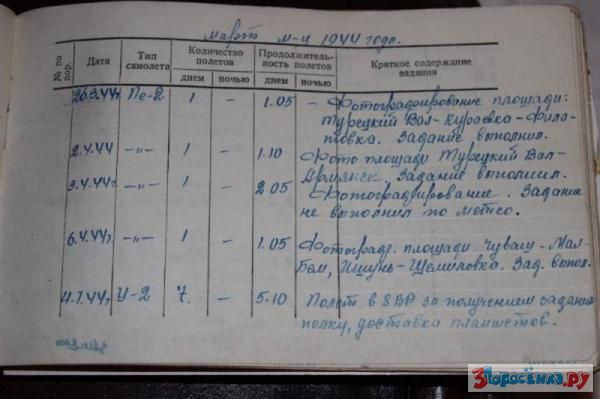 март м-ц 1944 года.
№ по пор.
Дата
Тип самолета
Количество полетов
днем
ночью
Продолжитель-ность полетов
днем
ночью
Краткое содержание задания
26.3.44г Пе-2 1 – 1.05 – Фотографирование площади:
Турецкий Вал-Кураевка-Фила-
товка. Задание выполнил.
2.4.44 –"– 1 – 1.10 Фото площади Турецкий Вал-
Армянск. Задание выполнил.
3.4.44г. –"– 1 – 2.05 Фотографирование. Задание
не выполнил по метео.
6.4.44г. –"– 1 – 1.05 Фотограф. площади Чуваш-Мал-
Бем, Ишунь- Зад. выпол.
У-2 7. – 5.10 Полет в 8ВА за получением задания
полку, доставка планшетов.
3поросёнка.ру